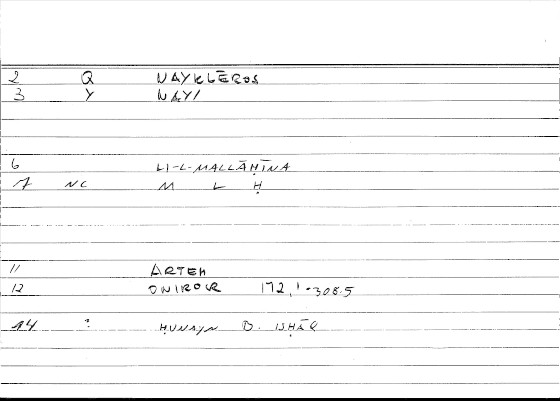 2 Q NAYKLĒROS
3 Y NAYI
6 LI-L-MALLĀḤĪNA
7 NC M L Ḥ
11 ARTEM
12 ONIROCR 172,1-308.5
14 : ḤUNAYN B. ISḤĀQ